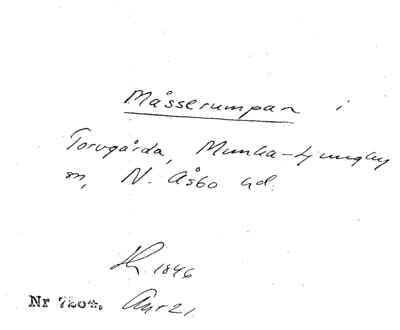 Måsserumpan i
Torvgårda, Munka-Ljungby
sn, N. Åsbo hd.
1846
Nr 7204. Anr 21.